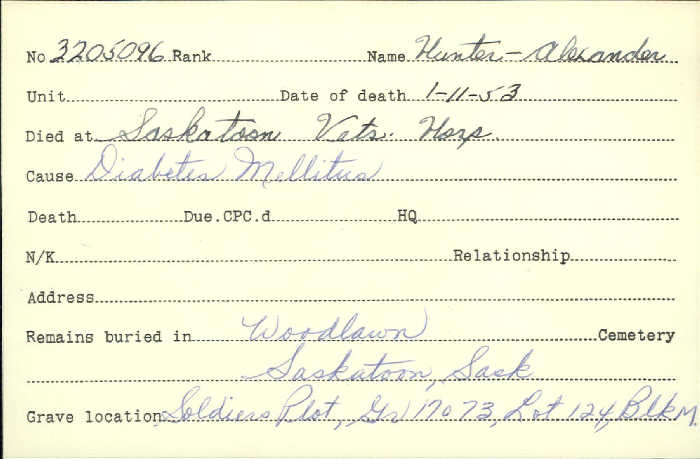 No 3205096 Rank Name Hunter - Alexander
Unit Date of death 1-11-53
Died at Saskatoon Vets. Hosp.
Cause Diabetes Mellitus
Death Due.CPC.d HQ
N/K Relationship
Address
Remains buried in Woodlawn Cemetery
Saskatoon, Sask
Grave location Soldiers Plot, Gr 17073, Lot 124, Blk M.